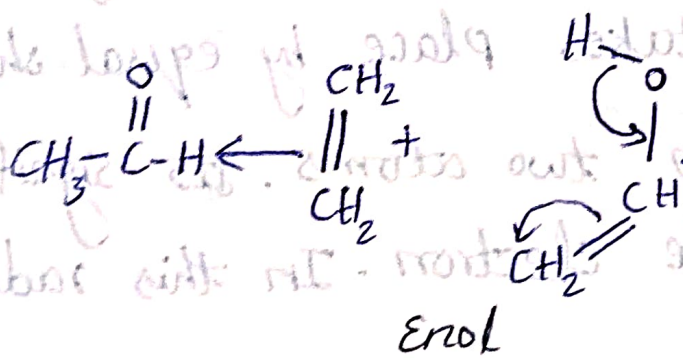 O
||
CH3-C-H ← CH2 || CH2 +
H-O
|
CH
||
CH2
Enol